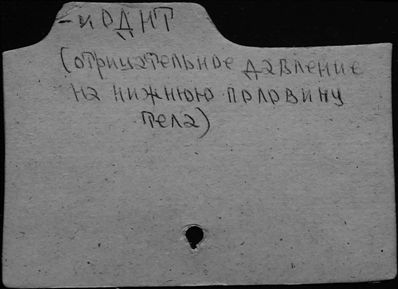 -иОДНТ
(отрицательное давление
на нижнюю половину
тела)